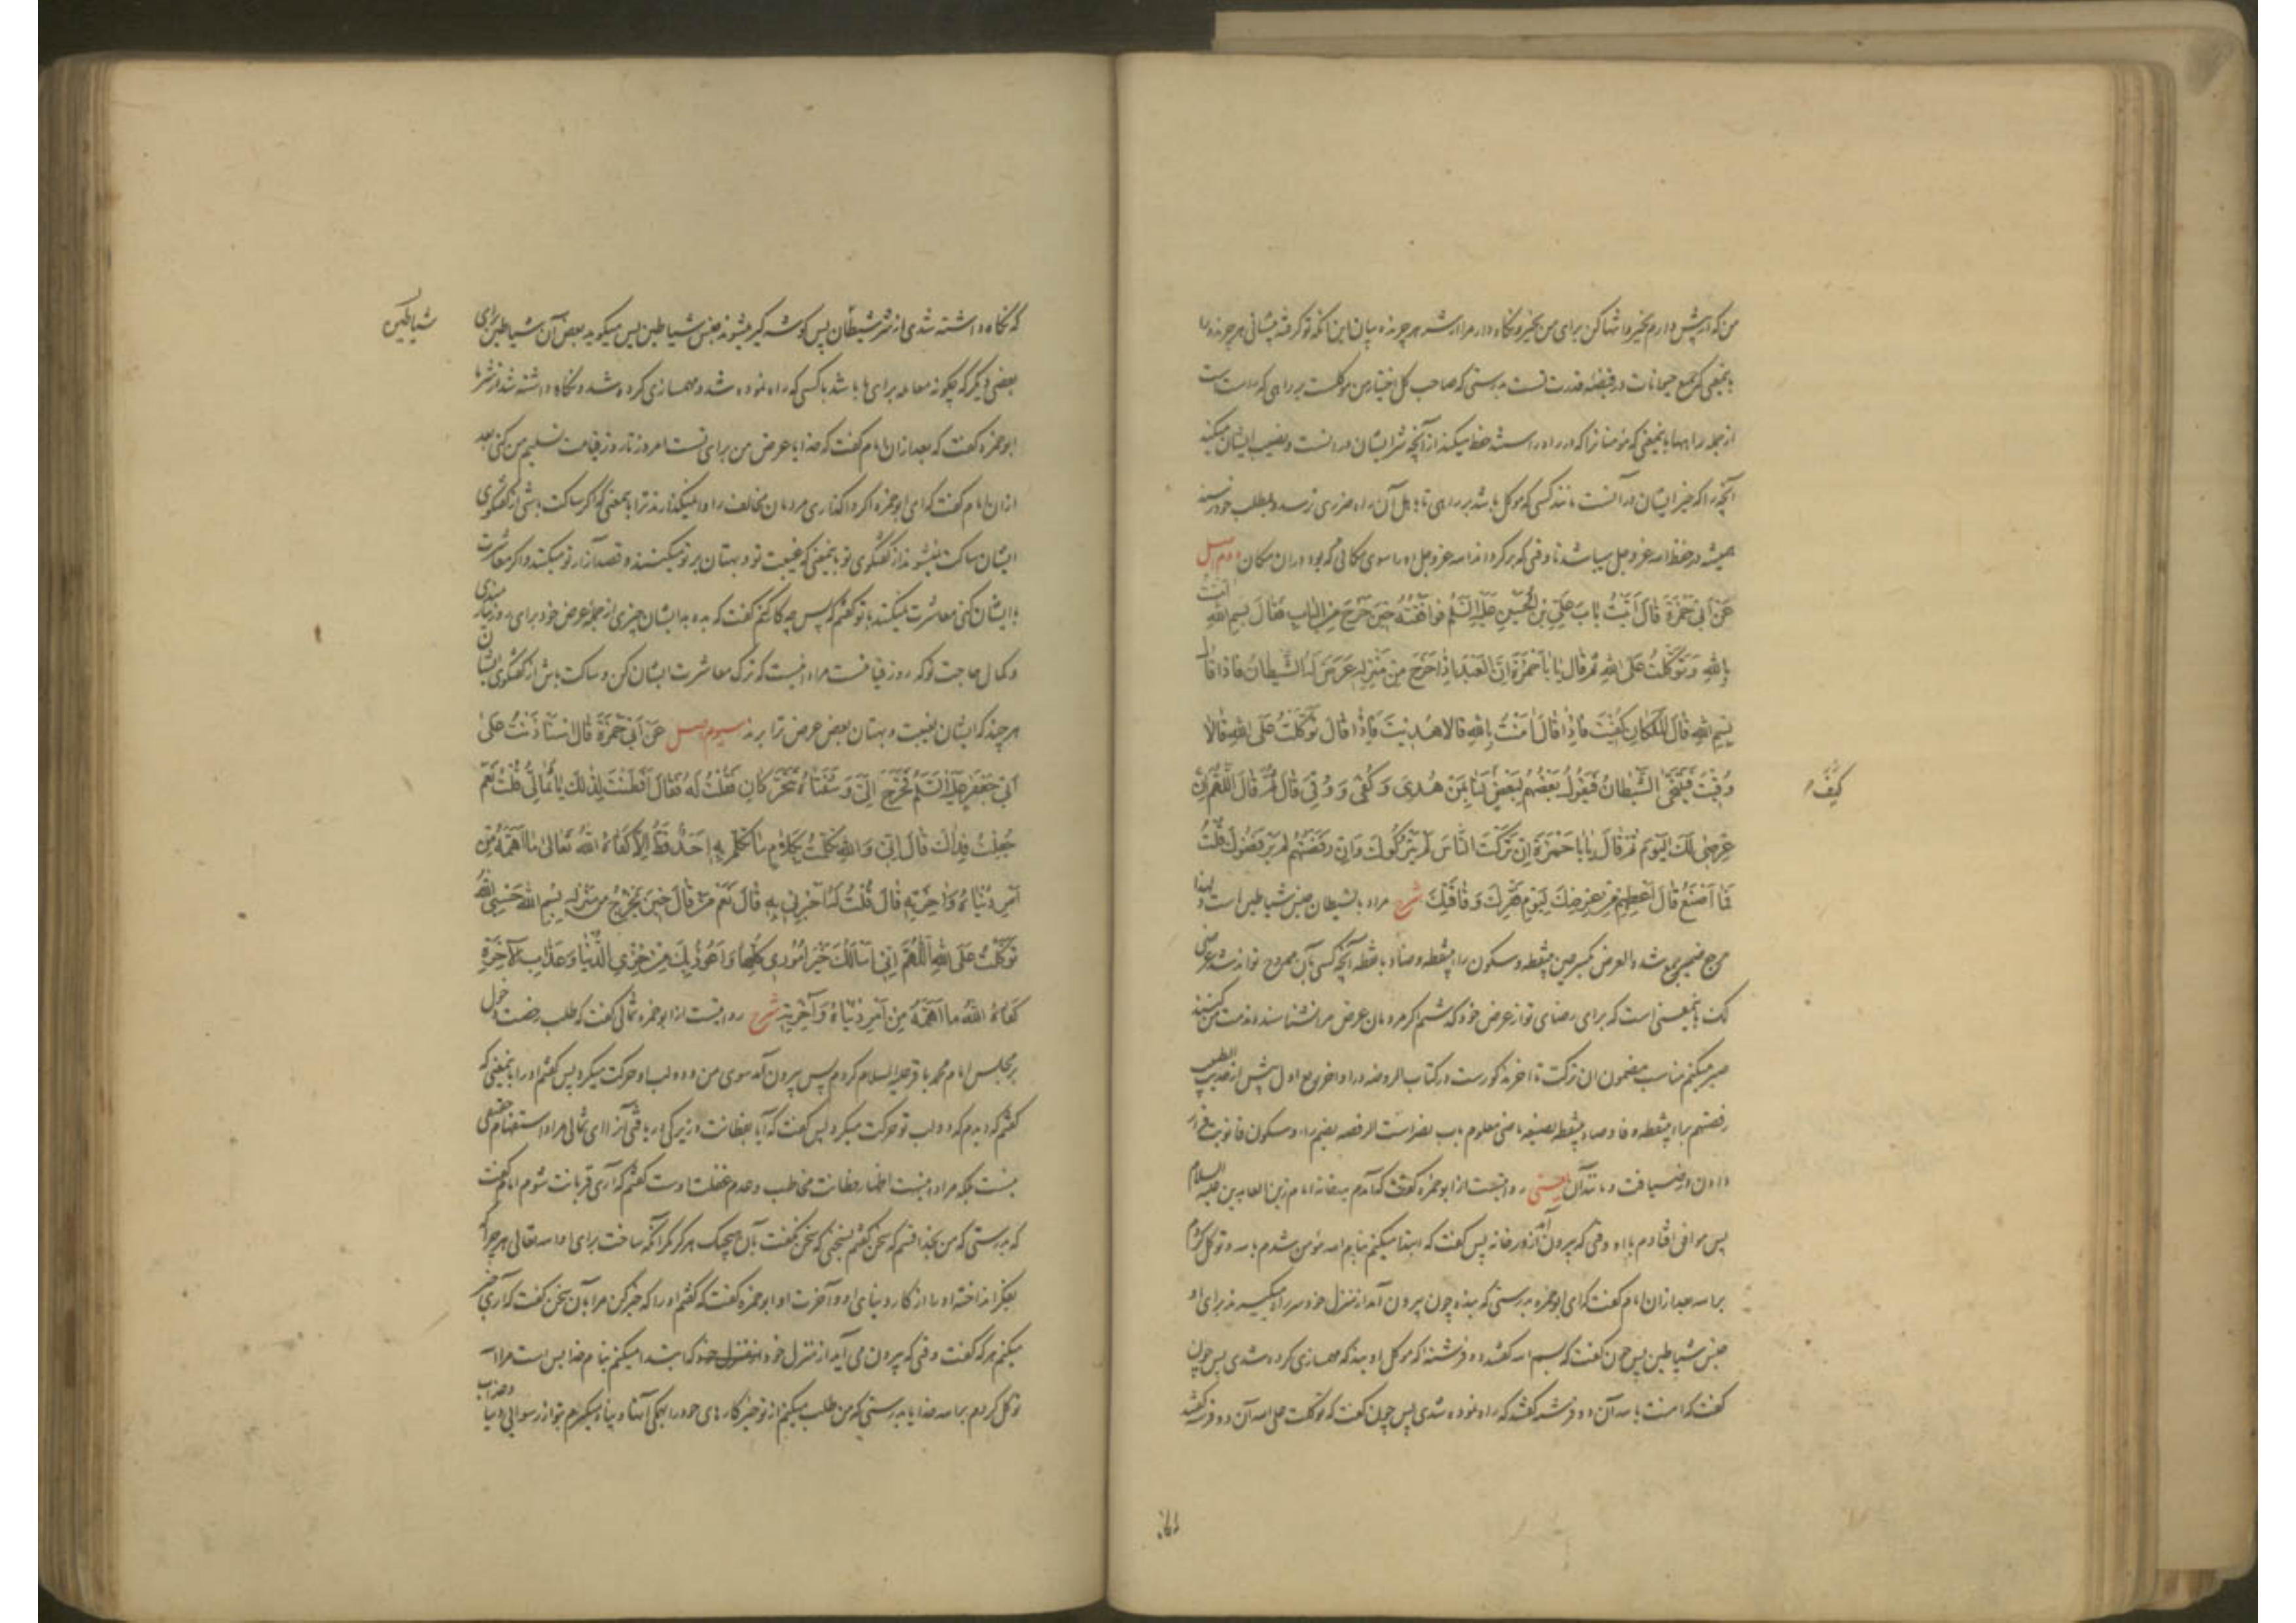 من که در پیش دارم بخیر و انتها کن برای من بخیر و نگاه دار مرا از شر هر جونده بیان این آنکه تو گرفته پیشانی هر جونده را
باینمعنی که جمیع حیوانات در قبضهٔ قدرت تست بدرستی که صاحب کل اختیار من موکلست بر راهی که راست است
از جمله راهها باینمعنی که مؤمنانرا که در راه راستند حفظ میکند از آنچه شر ایشان در آنست و نصیب ایشان میکند
آنچه را که خیر ایشان در آنست مانند کسی که موکل باشد بر راهی تا باهل آن راه ضرری نرسد و بمطلب خود رسند
همیشه در حفظ الله عزوجل میباشد تا وقتی که برگرداند الله عزوجل او را سوی مکانی که بود در آن مکان دوم اصل
عَنْ أَبِي حَمْزَةَ قَالَ أَتَيْتُ بَابَ عَلِيِّ بْنِ الْحُسَيْنِ عَلَيْهِ السَّلَمُ فَوَافَقْتُهُ حِينَ خَرَجَ مِنَ الْبَابِ فَقَالَ بِسْمِ اللهِ آمَنْتُ
بِاللهِ وَتَوَكَّلْتُ عَلَى اللهِ ثُمَّ قَالَ يَا بَا حَمْزَةَ إِنَّ الْعَبْدَ إِذَا خَرَجَ مِنْ مَنْزِلِهِ عَرَضَ لَهُ الشَّيْطَانُ فَإِذَا قَالَ
بِسْمِ اللهِ قَالَ الْمَلَكَانِ كُفِيتَ فَإِذَا قَالَ آمَنْتُ بِاللهِ قَالَا هُدِيتَ فَإِذَا قَالَ تَوَكَّلْتُ عَلَى اللهِ قَالَا
وُقِيتَ فَيَتَنَحَّى الشَّيْطَانُ فَيَقُولُ بَعْضُهُمْ لِبَعْضٍ لَنَا بِمَنْ هُدِيَ وَكُفِيَ وَوُقِيَ قَالَ ثُمَّ قَالَ اللَّهُمَّ إِنَّ
كَيْفَ
عِرْضِي لَكَ الْيَوْمَ ثُمَّ قَالَ يَا بَا حَمْزَةَ إِنْ تَرَكْتَ النَّاسَ لَمْ يَتْرُكُوكَ وَإِنْ رَفَضْتَهُمْ لَمْ يَرْفُضُوكَ قُلْتُ
فَمَا أَصْنَعُ قَالَ أَعْطِهِمْ مِنْ عِرْضِكَ لِيَوْمِ فَقْرِكَ وَفَاقَتِكَ شرح مراد بالشیطان جنس شیاطین است و لهذا
مرجع ضمیر جمع شده العرض بکسر عین بینقطه و سکون راء بینقطه و ضاد بانقطه آنچه کسی بآن ممدوح تواند شد عرضی
لک باینمعنی است که برای رضای تو از عرض خود گذشتم اگر مردمان عرض مرا نشناسند و مذمت من کنند
صبر میکنم مناسب مضمون ان ترکت تا آخر مذکورست در کتاب الروضه در اواخر ربع اول پیش از حدیث الطبیب
رفضتم براء بینقطه و فا و ضاد بانقطه بصیغه ماضی معلوم باب نصر است الرفضه بضم راء و سکون فا
دادن و ضیافت و مانند آن یعنی روایتست از ابوحمزه گفت که آمدم بدرخانه امام زین العابدین علیه السلام
پس موافق افتادم با او وقتی که بیرون آمد از درخانه پس گفت که ابتدا میکنم بنام الله مؤمن شدم بالله و توکل کردم
بر الله بعد از آن امام گفت که ای ابوحمزه بدرستی که بنده چون بیرون آمد از منزل خود سر راه میگیرند برای او
جنس شیاطین پس چون گفت که بسم الله گفتند دو فرشته که موکل او بیند که مهمسازی کرده شدی پس چون
گفت که آمنت بالله آن دو فرشته گفتند که راه نموده شدی پس چون گفت که توکلت علی الله آن دو فرشته گفتند
که نگاه داشته شدی از شر شیطان پس گوشه گیر میشوند جنس شیاطین پس میگوید بعض آن شیاطین برای
شیاطین
بعضی دیگر که چگونه معامله برای ما باشد با کسی که راه نموده شد و مهمسازی کرده شد و نگاه داشته شد از شر ما
ابوحمزه گفت که بعد از آن امام گفت که خدایا عرض من برای تست امروز تا روز قیامت تسلیم من کنی بعد
از آن امام گفت که ای ابوحمزه اگر واگذاری مردمان مخالف را وانمیگذارند ترا بمعنی که اگر ساکت باشی از گفتگوی
ایشان ساکت نمیشوند از گفتگوی تو باینمعنی که غیبت تو و بهتان بر تو میکنند و قصد آزار تو میکنند و اگر معاشرت
با ایشان کنی معاشرت نمیکنند با تو گفتم که پس چه کار کنم گفت که بده به ایشان چیزی از جمله عرض خود برای روز نیازمندی
و کمال حاجت تو که روز قیامتست مراد اینست که ترک معاشرت ایشان کن و ساکت باش از گفتگوی ایشان
هر چند که ایشان بغیبت و بهتان بعض عرض ترا برند سیوم اصل عَنْ أَبِي حَمْزَةَ قَالَ اسْتَأْذَنْتُ عَلَى
أَبِي جَعْفَرٍ عَلَيْهِ السَّلَمُ فَخَرَجَ إِلَيَّ وَشَفَتَاهُ تَتَحَرَّكَانِ فَقُلْتُ لَهُ فَقَالَ أَفَطَنْتَ لِذَلِكَ يَا ثُمَالِيُّ قُلْتُ نَعَمْ
جُعِلْتُ فِدَاكَ قَالَ إِنِّي وَاللهِ تَكَلَّمْتُ بِكَلَامٍ مَا تَكَلَّمَ بِهِ أَحَدٌ قَطُّ إِلَّا كَفَاهُ اللهُ تَعَالَى مَا أَهَمَّهُ مِنْ
أَمْرِ دُنْيَاهُ وَآخِرَتِهِ قَالَ قُلْتُ لَهُ أَخْبِرْنِي بِهِ قَالَ نَعَمْ مَنْ قَالَ حِينَ يَخْرُجُ مِنْ مَنْزِلِهِ بِسْمِ اللهِ حَسْبِيَ اللهُ
تَوَكَّلْتُ عَلَى اللهِ اللَّهُمَّ إِنِّي أَسْأَلُكَ خَيْرَ أُمُورِي كُلِّهَا وَأَعُوذُ بِكَ مِنْ خِزْيِ الدُّنْيَا وَعَذَابِ الْآخِرَةِ
كَفَاهُ اللهُ مَا أَهَمَّهُ مِنْ أَمْرِ دُنْيَاهُ وَآخِرَتِهِ شرح روایتست از ابوحمزه ثمالی گفت که طلب رخصت دخول
بر مجلس امام محمد باقر علیه السلام کردم پس بیرون آمد سوی من و دو لب او حرکت میکرد پس گفتم او را باینمعنی که
گفتم که دیدم که دو لب تو حرکت میکرد پس گفت که آیا بفطانت و زیرکی دریافتی آنرا ای ثمالی مراد استفهام حقیقی
نیست بلکه مراد اینست اظهار فطانت مخاطب و عدم غفلت اوست گفتم که آری قربانت شوم امام گفت
که بدرستی که من بخدا قسم که سخن گفتم بسخنی که سخن نگفت بآن هیچیک هرگز مگر آنکه ساخت برای او الله تعالی هر چه را که
بفکر انداخته او را از کار دنیای او و آخرت او ابوحمزه گفت که گفتم او را که خبر کن مرا بآن سخن گفت که آری خبر
میکنم هر که گفت وقتی که بیرون می آید از منزل خود که ابتدا میکنم بنام خدا بس است مرا الله
توکل کردم بر الله خدایا بدرستی که من طلب میکنم از تو خیر کارهای خود را همگی آنها و پناه میگیرم بتو از رسوایی دنیا و عذاب